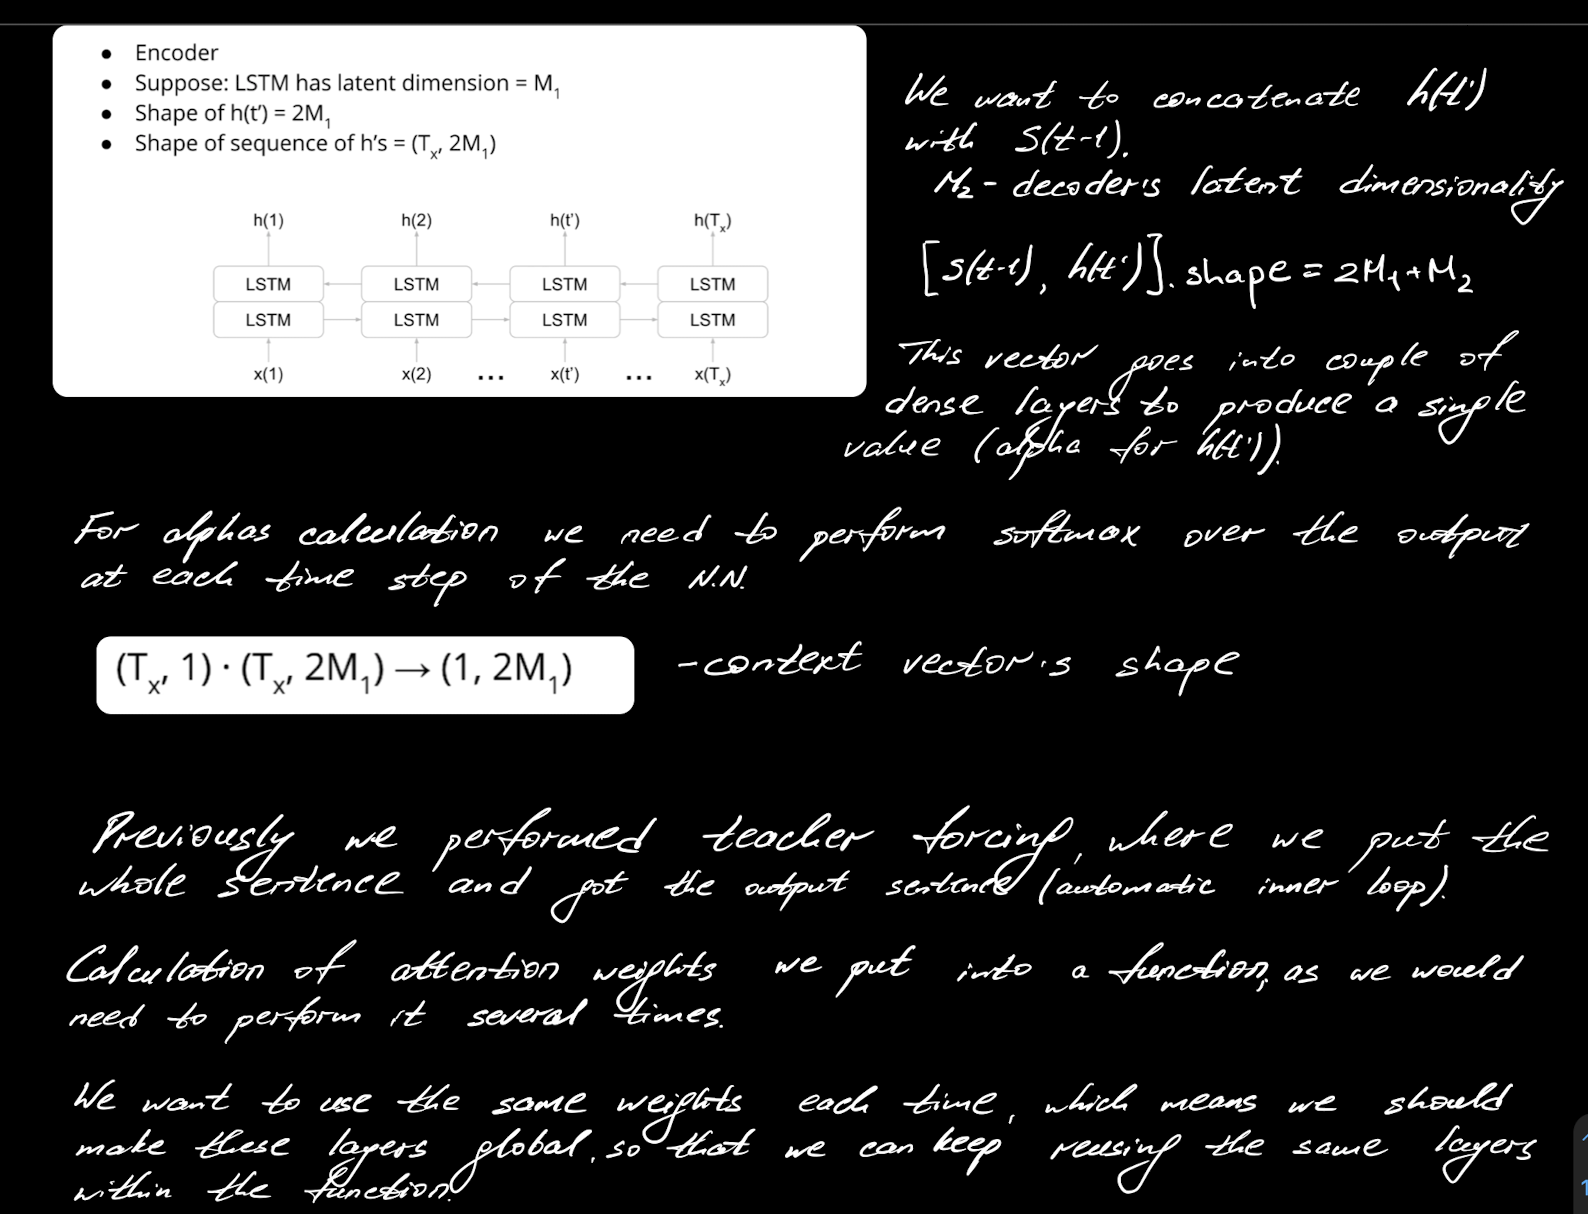 ● Encoder
● Suppose: LSTM has latent dimension = M₁
● Shape of h(t') = 2M₁
● Shape of sequence of h's = (Tₓ, 2M₁)
h(1) h(2) h(t') h(Tₓ)
LSTM LSTM LSTM LSTM
LSTM LSTM LSTM LSTM
x(1) x(2) ... x(t') ... x(Tₓ)
We want to concatenate h(t')
with S(t-1).
M₂ - decoder's latent dimensionality
[s(t-1), h(t')].shape = 2M₁+M₂
This vector goes into couple of
dense layers to produce a single
value (alpha for h(t')).
For alphas calculation we need to perform softmax over the output
at each time step of the N.N.
(Tₓ, 1) · (Tₓ, 2M₁) → (1, 2M₁)
- context vector's shape
Previously we performed teacher forcing, where we put the
whole sentence and got the output sentence (automatic inner loop).
Calculation of attention weights we put into a function, as we would
need to perform it several times.
We want to use the same weights each time, which means we should
make these layers global, so that we can keep reusing the same layers
within the function.